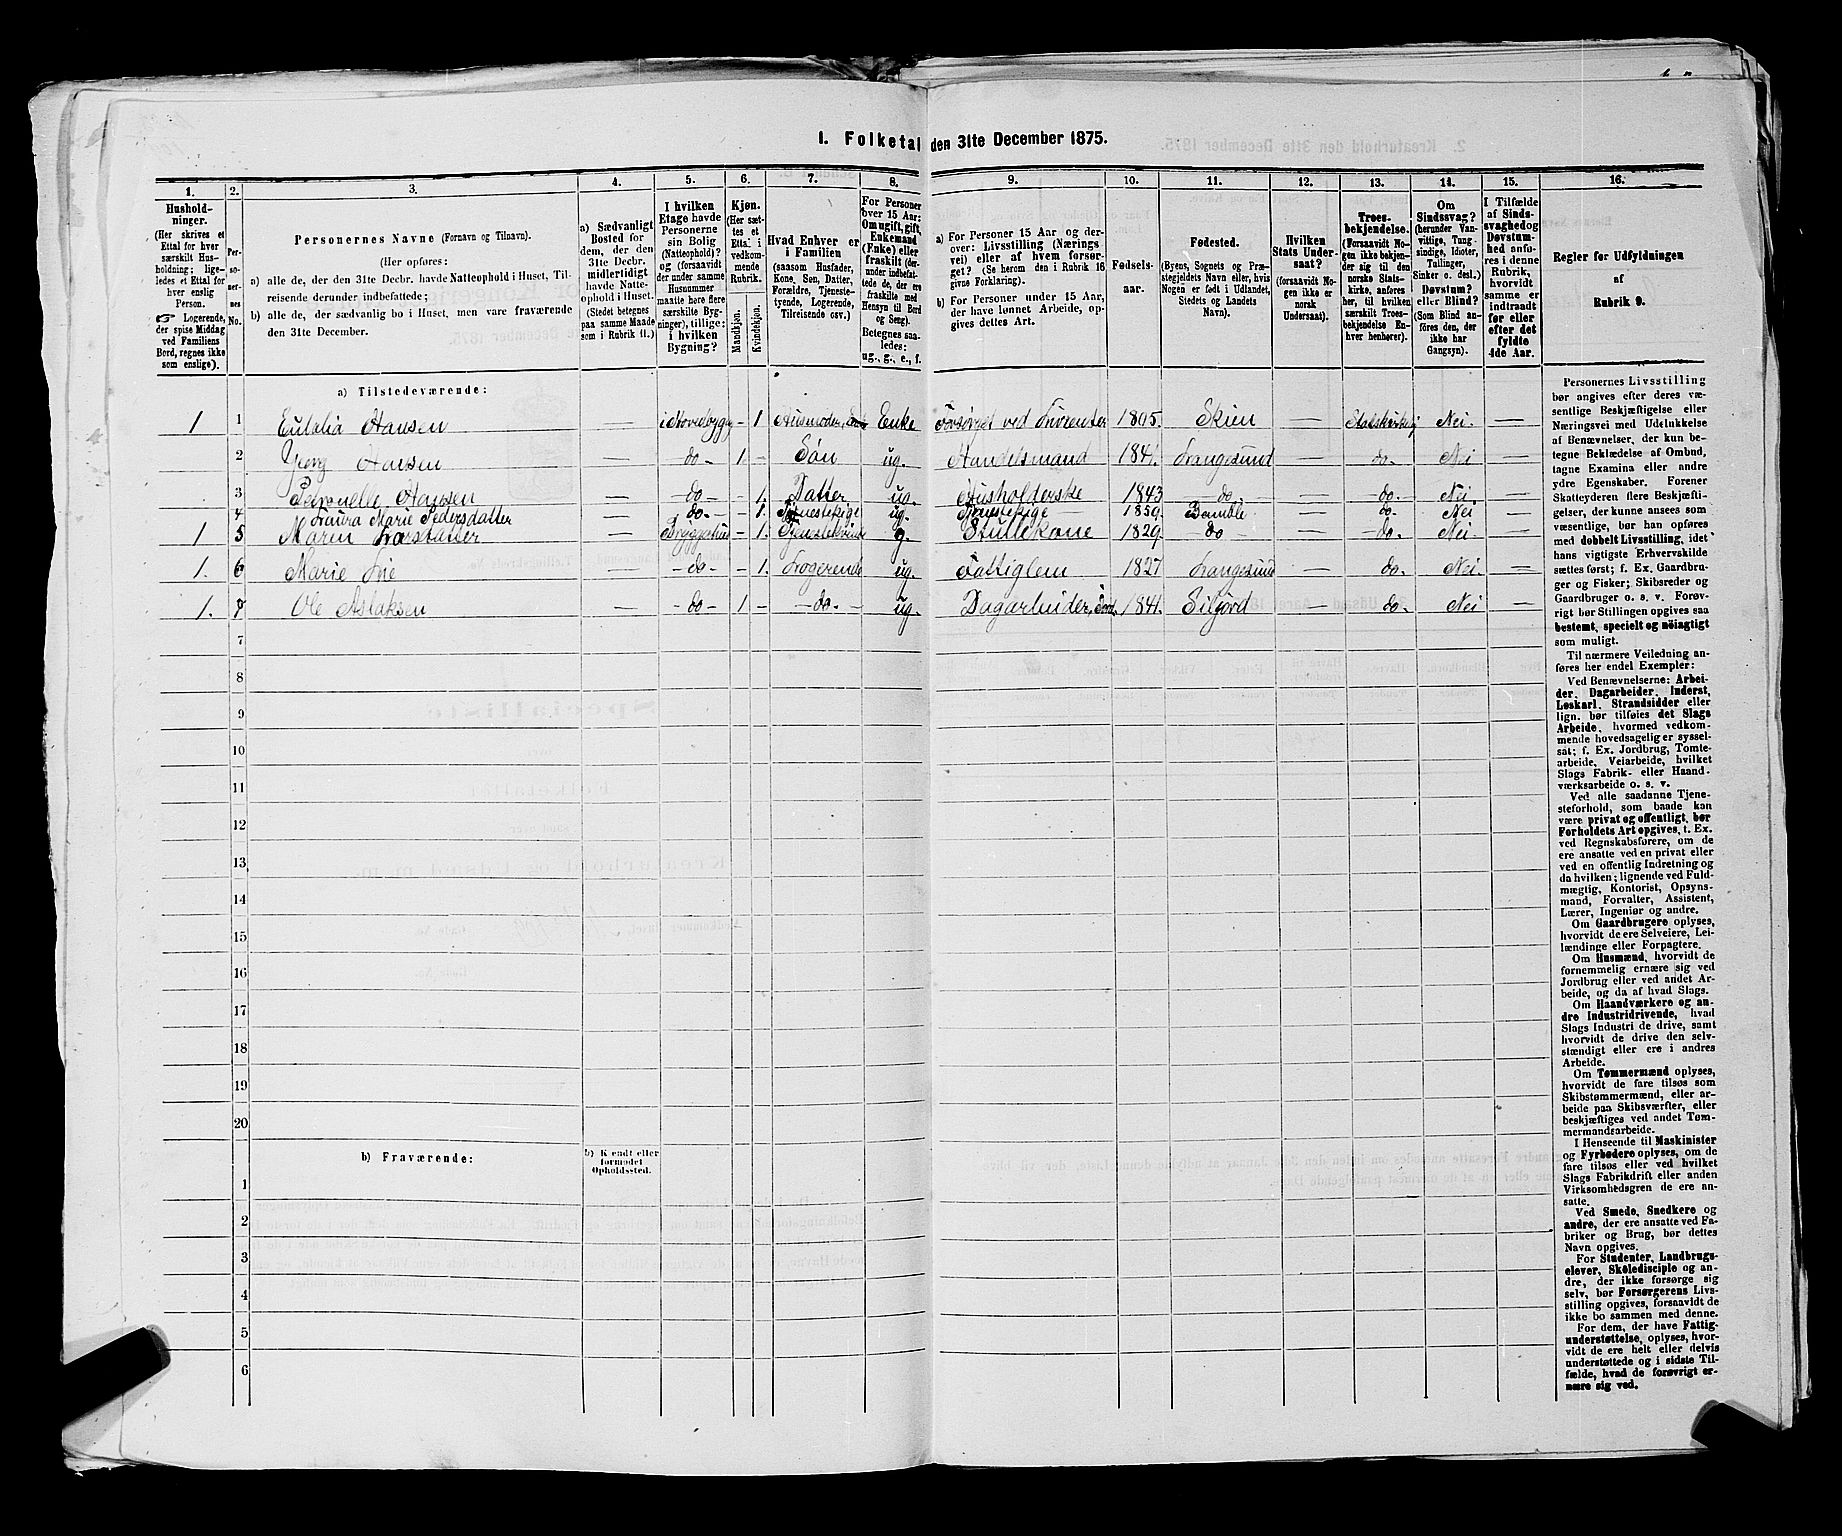 1. Folketal den 31te December 1875.
1. 2. 3. 4. 5. 6. 7. 8. 9. 10. 11. 12. 13. 14. 15. 16.
Hushold-
ninger.
(Her skrives et
Ettal for hver
særskilt Hus-
holdning; lige-
ledes et Ettal for
hver enslig
Person.
☞ Logerende,
der spise Middag
ved Familiens
Bord, regnes ikke
som enslige).
Per-
so-
ner-
nes
No.
Personernes Navne (Fornavn og Tilnavn).
(Her opføres:
a) alle de, der den 31te Decbr. havde Natteophold i Huset, Til-
reisende derunder indbefattede;
b) alle de, der sædvanlig bo i Huset, men vare fraværende
den 31te December.
a) Sædvanligt
Bosted for
dem, der den
31te Decbr.
midlertidigt
havde Natte-
ophold i Huset.
(Stedet betegnes
paa samme Maade
som i Rubrik 11.)
I hvilken
Etage havde
Personerne
sin Bolig
(Natteophold)?
og (forsaavidt
der under samme
Husnummer
maatte høre flere
særskilte Byg-
ninger), tillige:
i hvilken
Bygning?
Kjøn.
(Her sæt-
tes et
Ettal i
vedkom-
mende
Rubrik.
Mandkjøn.
Kvindekjøn.
Hvad Enhver er
i Familien
(saasom Husfader,
Kone, Søn, Datter,
Forældre, Tjeneste-
tyende, Logerende,
Tilreisende osv.)
For Personer
over 15 Aar:
Om ugift, gift,
Enkemand
(Enke) eller
fraskilt (der-
under indbefat-
tede de, der ere
fraskilte med
Hensyn til Bord
og Seng).
Betegnes saa-
ledes:
ug., g., e., f.
a) For Personer 15 Aar og der-
over: Livsstilling (Nærings
vei) eller af hvem forsør-
get? (Se herom den i Rubrik 16
givne Forklaring).
b) For Personer under 15 Aar,
der have lønnet Arbeide, op-
gives dettes Art.
Fødsels-
aar.
Fødested.
(Byens, Sognets og Præ-
stegjeldets Navn eller, hvis
Nogen er født i Udlandet,
Stedets og Landets
Navn).
Hvilken
Stats Under-
saat?
(forsaavidt No-
gen ikke er
norsk
Undersaat).
Troes-
bekjendelse.
(Forsaavidt No-
gen ikke bekjen-
der sig til den
norske Stats-
kirke, anføres
her, til hvilken
særskilt Troes-
bekjendelse En-
hver henhører).
Om
Sindssvag?
(herunder Van-
vittige, Tung-
sindige, Idioter,
Tullinger,
Sinker o. desl.)
Døvstum?
eller Blind?
(Som Blind an-
føres den, der
ikke har
Gangsyn).
I Tilfælde
af Sinds-
svaghed og
Døvstum-
hed anfø-
res i denne
Rubrik,
hvorvidt
samme er
indtraadt
før eller
efter det
fyldte
4de Aar.
Regler før Udfyldningen
af
Rubrik 9.
a) Tilstedeværende:
1 1 Eulalia Hansen — i Hovedbygg - 1 Husmoder, Enke Forsørget ved Livrenter 1805. Skien — Statskirkelig Nei. —
2 Georg Hansen — do - 1. - Søn ug. Handelsmand 1841. Langesund — do. Nei —
3 Petronelle Hansen — do - - 1. Datter ug. Husholderske 1843 do — do. Nei —
4 Laura Marie Pedersdatter — do. - - 1. Tjenestepige ug. Tjenestepige 1859. Bamble — do. Nei —
1 5 Maren Larsdatter — Bryggerhus - 1. g. 1829. do — do. Nei. —
1. 6 Marie Lie — do - - 1. Logerende ug. Fattiglem 1827 Langesund — do. Nei. —
1. 7 Ole Aslaksen — do - 1 - do. - ug. Dagarbeider, Jord. 1841. Siljord — do. Nei —
7
8
9
10
11
12
13
14
15
16
17
18
19
20
b) Fraværende:
b) Kjendt eller
formodet
Opholdssted.
1
2
3
4
5
6
Personernes Livsstilling
bør angives efter deres væ-
sentlige Beskjæftigelse eller
Næringsvei med Udelukkelse
af Benævnelser, der kun be-
tegne Beklædelse af Ombud,
tagne Examina eller andre
ydre Egenskaber. Forener
Skatteyderen flere Beskjæfti-
gelser, der kunne ansees som
væsentlige, bør han opføres
med dobbelt Livsstilling, idet
hans vigtigste Erhvervskilde
sættes først; f. Ex. Gaardbru-
ger og Fisker; Skibsreder og
Gaardbruger o. s. v. Forøv-
rigt bør Stillingen opgives saa
bestemt, specielt og nöiagtigt
som muligt.
Til nærmere Veiledning an-
føres her endel Exempler:
Ved Benævnelserne: Arbei-
der, Dagarbeider, Inderst,
Løskarl, Strandsidder eller
lign. bør tilføies det Slags
Arbeide, hvormed vedkom-
mende hovedsagelig er syssel-
sat; f. Ex. Jordbrug, Tomte-
arbeide, Veiarbeide, hvilket
Slags Fabrik- eller Haand-
værksarbeide o. s. v.
Ved alle saadanne Tjene-
steforhold, som baade kan
være privat og offentligt, bør
Forholdets Art opgives, t. Ex.
ved Regnskabsførere, om de
ere ansatte ved en privat eller
ved en offentlig Indretning og
da hvilken; lignende ved Fuld-
mægtig, Kontorist, Opsyns-
mand, Forvalter, Assistent,
Lærer, Ingeniør og andre.
Om Gaardbrugere oplyses,
hvorvidt de ere Selveiere, Lei-
lændinge eller Forpagtere.
Om Husmænd, hvorvidt de
fornemmelig ernære sig ved
Jordbrug eller ved andet Ar-
beide, og da af hvad Slags.
Om Haandværkere og an-
dre Industridrivende, hvad
Slags Industri de drive, samt
hvorvidt de drive den selv-
stændigt eller ere i andres
Arbeide.
Om Tømmermænd oplyses,
hvorvidt de fare tilsøs som
Skibstømmermænd, eller ar-
beide paa Skibsværfter, eller
beskjæftiges ved andet Tøm-
mermandsarbeide.
I Henseende til Maskinister
og Fyrbødere oplyses, om de
fare tilsøs eller ved hvilket
Slags Fabrikdrift eller anden
Virksomhedsgren de ere an-
satte.
Ved Smede, Snedkere og
andre, der ere ansatte ved Fa-
briker og Brug, bør dettes
Navn opgives.
For Studenter, Landbrugs-
elever, Skoledisciple og an-
dre, der ikke forsørge sig
selv, bør Forsørgerens Livs-
stilling opgives, forsaavidt de
ikke bo sammen med denne.
For dem, der have Fattig-
understøttelse, oplyses, hvor-
vidt de ere helt eller delvis
understøttede og i sidste Til-
fælde, hvad de forøvrigt er-
nære sig ved.